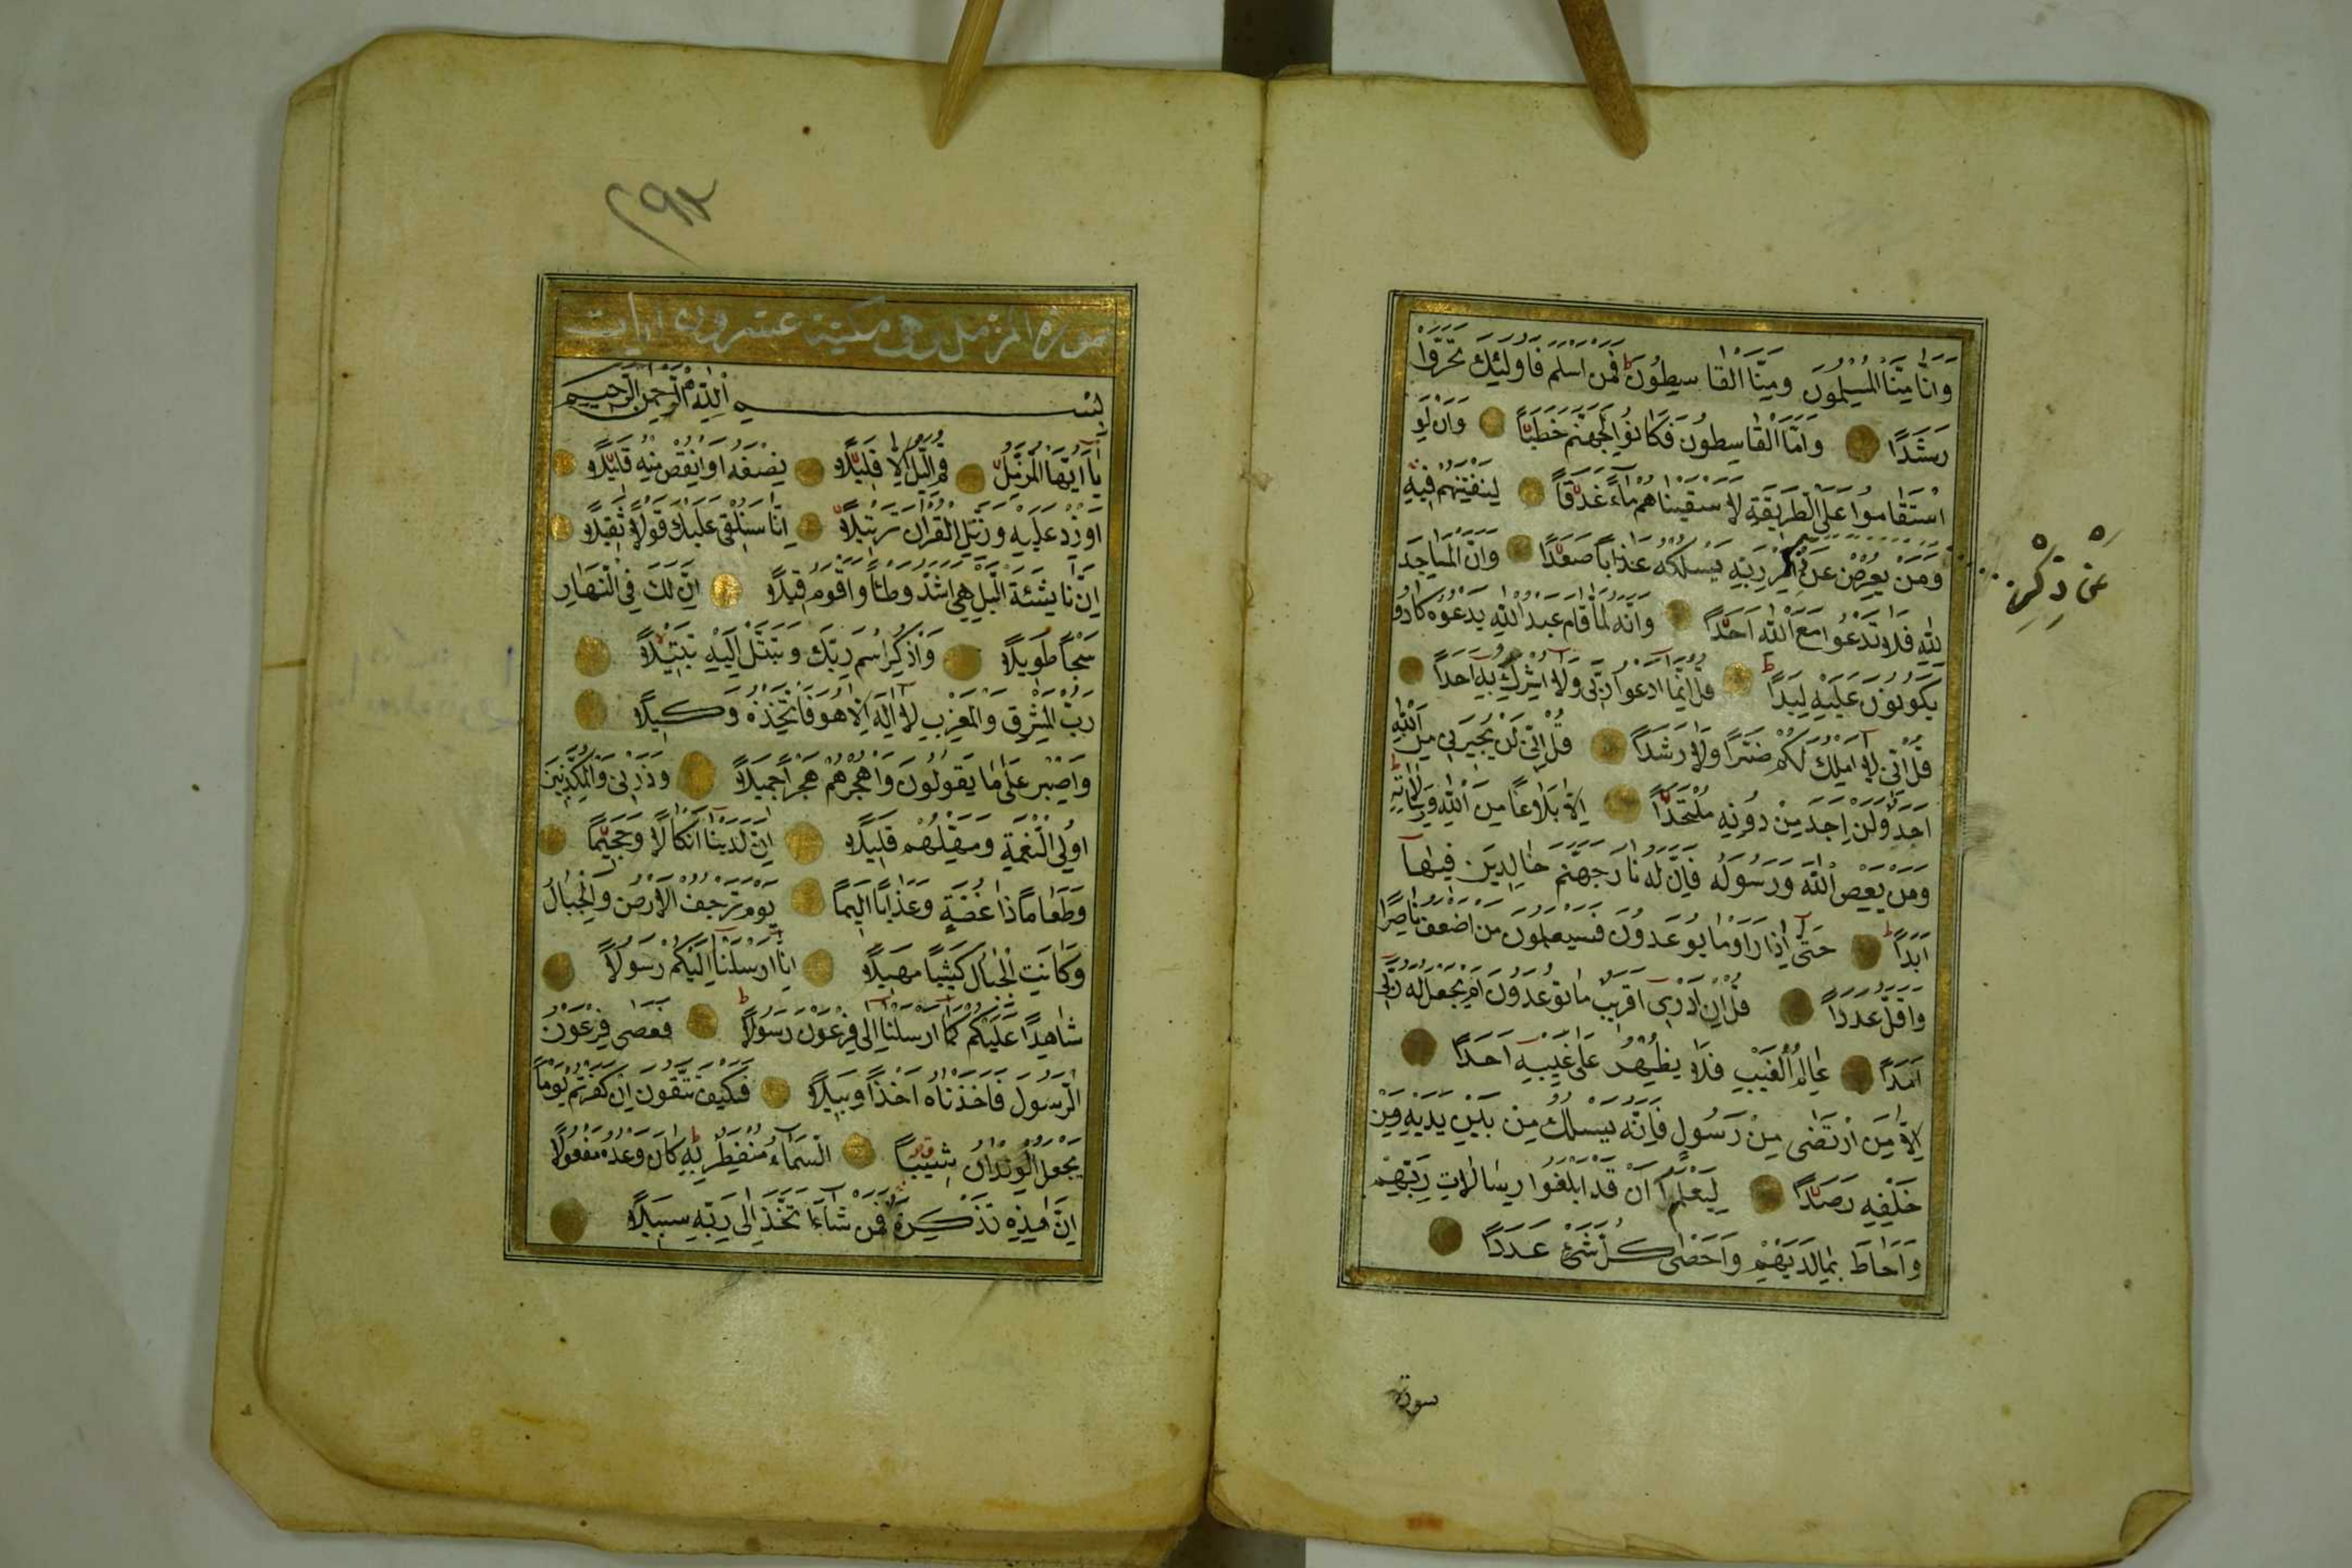 وَاَنَّا مِنَّا الْمُسْلِمُونَ وَمِنَّا الْقَاسِطُونَ فَمَنْ اَسْلَمَ فَاُولٰئِكَ تَحَرَّوْا
رَشَدًا وَاَمَّا الْقَاسِطُونَ فَكَانُوا لِجَهَنَّمَ حَطَبًا وَاَنْ لَوِ
اسْتَقَامُوا عَلَى الطَّرِيقَةِ لَاَسْقَيْنَاهُمْ مَاءً غَدَقًا لِنَفْتِنَهُمْ فِيهِ
وَمَنْ يُعْرِضْ عَنْ ذِكْرِ رَبِّهِ يَسْلُكْهُ عَذَابًا صَعَدًا وَاَنَّ الْمَسَاجِدَ
عَنْ ذِكْرِ
لِلّٰهِ فَلَا تَدْعُوا مَعَ اللّٰهِ اَحَدًا وَاَنَّهُ لَمَّا قَامَ عَبْدُ اللّٰهِ يَدْعُوهُ كَادُوا
يَكُونُونَ عَلَيْهِ لِبَدًا قُلْ اِنَّمَا اَدْعُوا رَبِّي وَلَا اُشْرِكُ بِهِ اَحَدًا
قُلْ اِنِّي لَا اَمْلِكُ لَكُمْ ضَرًّا وَلَا رَشَدًا قُلْ اِنِّي لَنْ يُجِيرَنِي مِنَ اللّٰهِ
اَحَدٌ وَلَنْ اَجِدَ مِنْ دُونِهِ مُلْتَحَدًا اِلَّا بَلَاغًا مِنَ اللّٰهِ وَرِسَالَاتِهِ
وَمَنْ يَعْصِ اللّٰهَ وَرَسُولَهُ فَاِنَّ لَهُ نَارَ جَهَنَّمَ خَالِدِينَ فِيهَا
اَبَدًا حَتّٰى اِذَا رَاَوْا مَا يُوعَدُونَ فَسَيَعْلَمُونَ مَنْ اَضْعَفُ نَاصِرًا
وَاَقَلُّ عَدَدًا قُلْ اِنْ اَدْرِي اَقَرِيبٌ مَا تُوعَدُونَ اَمْ يَجْعَلُ لَهُ رَبِّي
اَمَدًا عَالِمُ الْغَيْبِ فَلَا يُظْهِرُ عَلٰى غَيْبِهِ اَحَدًا
اِلَّا مَنِ ارْتَضٰى مِنْ رَسُولٍ فَاِنَّهُ يَسْلُكُ مِنْ بَيْنِ يَدَيْهِ وَمِنْ
خَلْفِهِ رَصَدًا لِيَعْلَمَ اَنْ قَدْ اَبْلَغُوا رِسَالَاتِ رَبِّهِمْ
وَاَحَاطَ بِمَا لَدَيْهِمْ وَاَحْصٰى كُلَّ شَيْءٍ عَدَدًا
سورة
٢٩٢
سورة المزمل وهى مكية عشرون ايات
بِسْمِ اللّٰهِ الرَّحْمٰنِ الرَّحِيمِ
يَا اَيُّهَا الْمُزَّمِّلُ قُمِ الَّيْلَ اِلَّا قَلِيلًا نِصْفَهُ اَوِ انْقُصْ مِنْهُ قَلِيلًا
اَوْ زِدْ عَلَيْهِ وَرَتِّلِ الْقُرْاٰنَ تَرْتِيلًا اِنَّا سَنُلْقِي عَلَيْكَ قَوْلًا ثَقِيلًا
اِنَّ نَاشِئَةَ الَّيْلِ هِيَ اَشَدُّ وَطْئًا وَاَقْوَمُ قِيلًا اِنَّ لَكَ فِي النَّهَارِ
سَبْحًا طَوِيلًا وَاذْكُرِ اسْمَ رَبِّكَ وَتَبَتَّلْ اِلَيْهِ تَبْتِيلًا
رَبُّ الْمَشْرِقِ وَالْمَغْرِبِ لَا اِلٰهَ اِلَّا هُوَ فَاتَّخِذْهُ وَكِيلًا
وَاصْبِرْ عَلٰى مَا يَقُولُونَ وَاهْجُرْهُمْ هَجْرًا جَمِيلًا وَذَرْنِي وَالْمُكَذِّبِينَ
اُولِي النَّعْمَةِ وَمَهِّلْهُمْ قَلِيلًا اِنَّ لَدَيْنَا اَنْكَالًا وَجَحِيمًا
وَطَعَامًا ذَا غُصَّةٍ وَعَذَابًا اَلِيمًا يَوْمَ تَرْجُفُ الْاَرْضُ وَالْجِبَالُ
وَكَانَتِ الْجِبَالُ كَثِيبًا مَهِيلًا اِنَّا اَرْسَلْنَا اِلَيْكُمْ رَسُولًا
شَاهِدًا عَلَيْكُمْ كَمَا اَرْسَلْنَا اِلٰى فِرْعَوْنَ رَسُولًا فَعَصٰى فِرْعَوْنُ
الرَّسُولَ فَاَخَذْنَاهُ اَخْذًا وَبِيلًا فَكَيْفَ تَتَّقُونَ اِنْ كَفَرْتُمْ يَوْمًا
يَجْعَلُ الْوِلْدَانَ شِيبًا السَّمَاءُ مُنْفَطِرٌ بِهِ كَانَ وَعْدُهُ مَفْعُولًا
اِنَّ هٰذِهِ تَذْكِرَةٌ فَمَنْ شَاءَ اتَّخَذَ اِلٰى رَبِّهِ سَبِيلًا